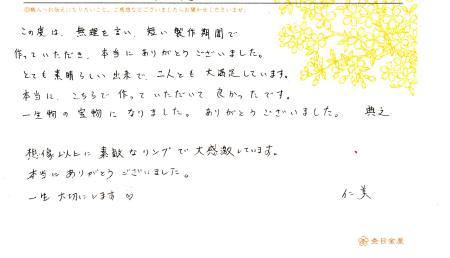 ◎職人へお伝えになりたいこと、ご感想などございましたらお聞かせくださいませ。
この度は、無理を言い、短い製作期間で
作っていただき、本当にありがとうございました。
とても素晴らしい出来で、二人とも大満足しています。
本当に、こちらで作っていただいて良かったです。
一生物の宝物になりました。ありがとうございました。 典之
想像以上に素敵なリングで大感激しています。
本当にありがとうございました。
一生大切にします♡ 仁美
杢目金屋